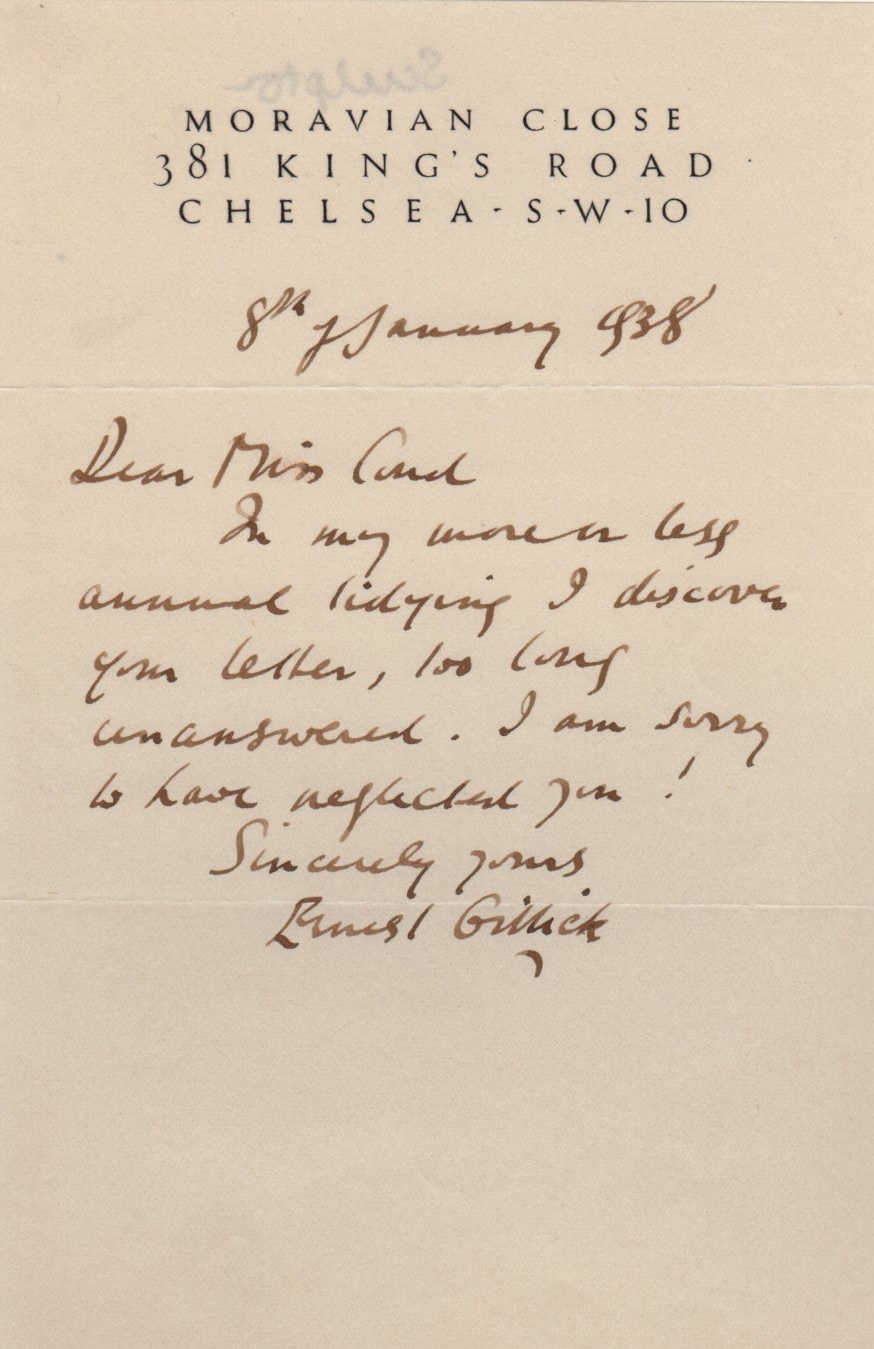 Sculptor
MORAVIAN CLOSE
381 KING'S ROAD
CHELSEA-S-W-10
8th of January 1938
Dear Miss
In my more or less
annual tidying I discover
your letter, too long
unanswered. I am sorry
to have neglected you!
Sincerely yours
Ernest Gillick